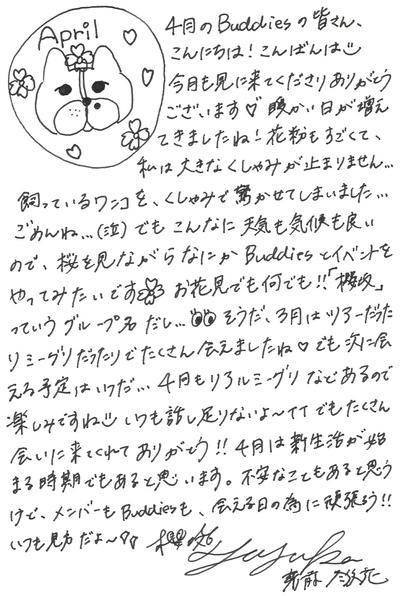 April
4月のBuddiesの皆さん、
こんにちは!こんばんは
今月も見に来てくださりありがとう
ございます♡暖かい日が増え
てきましたね!花粉もすごくて、
私は大きなくしゃみが止まりません…
飼っているワンコを、くしゃみで驚かせてしまいました…
ごめんね…(泣)でもこんなに天気も気候も良い
ので、桜を見ながらなにかBuddiesとイベントを
やってみたいです お花見でも何でも!!「櫻坂」
っていうグループ名だし… そうだ、3月はツアーだった
りミーグリだったりでたくさん会えましたね♡でも次に会
える予定はいつだ…4月もリアルミーグリなどあるので
楽しみですね いつも話し足りないよ〜TT でもたくさん
会いに来てくれてありがとう!!4月は新生活が始
まる時期でもあると思います。不安なこともあると思う
けど、メンバーもBuddiesも、会える日の為に頑張ろう!!
いつも見方だよ〜